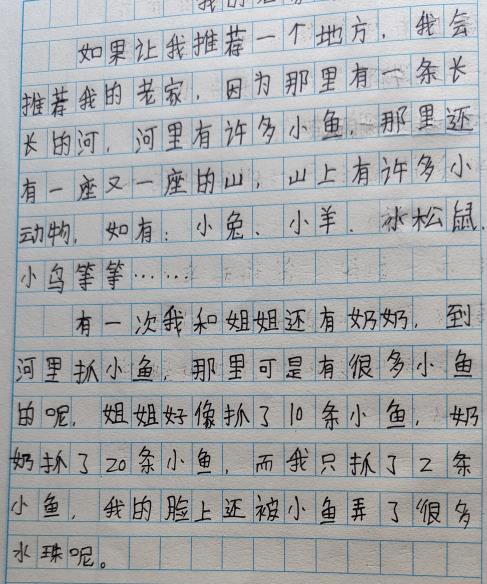 我的老家
如果让我推荐一个地方，我会
推荐我的老家，因为那里有一条长
长的河，河里有许多小鱼，那里还
有一座又一座的山，山上有许多小
动物，如有：小兔、小羊、小松鼠、
小鸟等等……
有一次我和姐姐还有奶奶，到
河里抓小鱼，那里可是有很多小鱼
的呢，姐姐好像抓了10条小鱼，奶
奶抓了20条小鱼，而我只抓了2条
小鱼，我的脸上还被小鱼弄了很多
水珠呢。